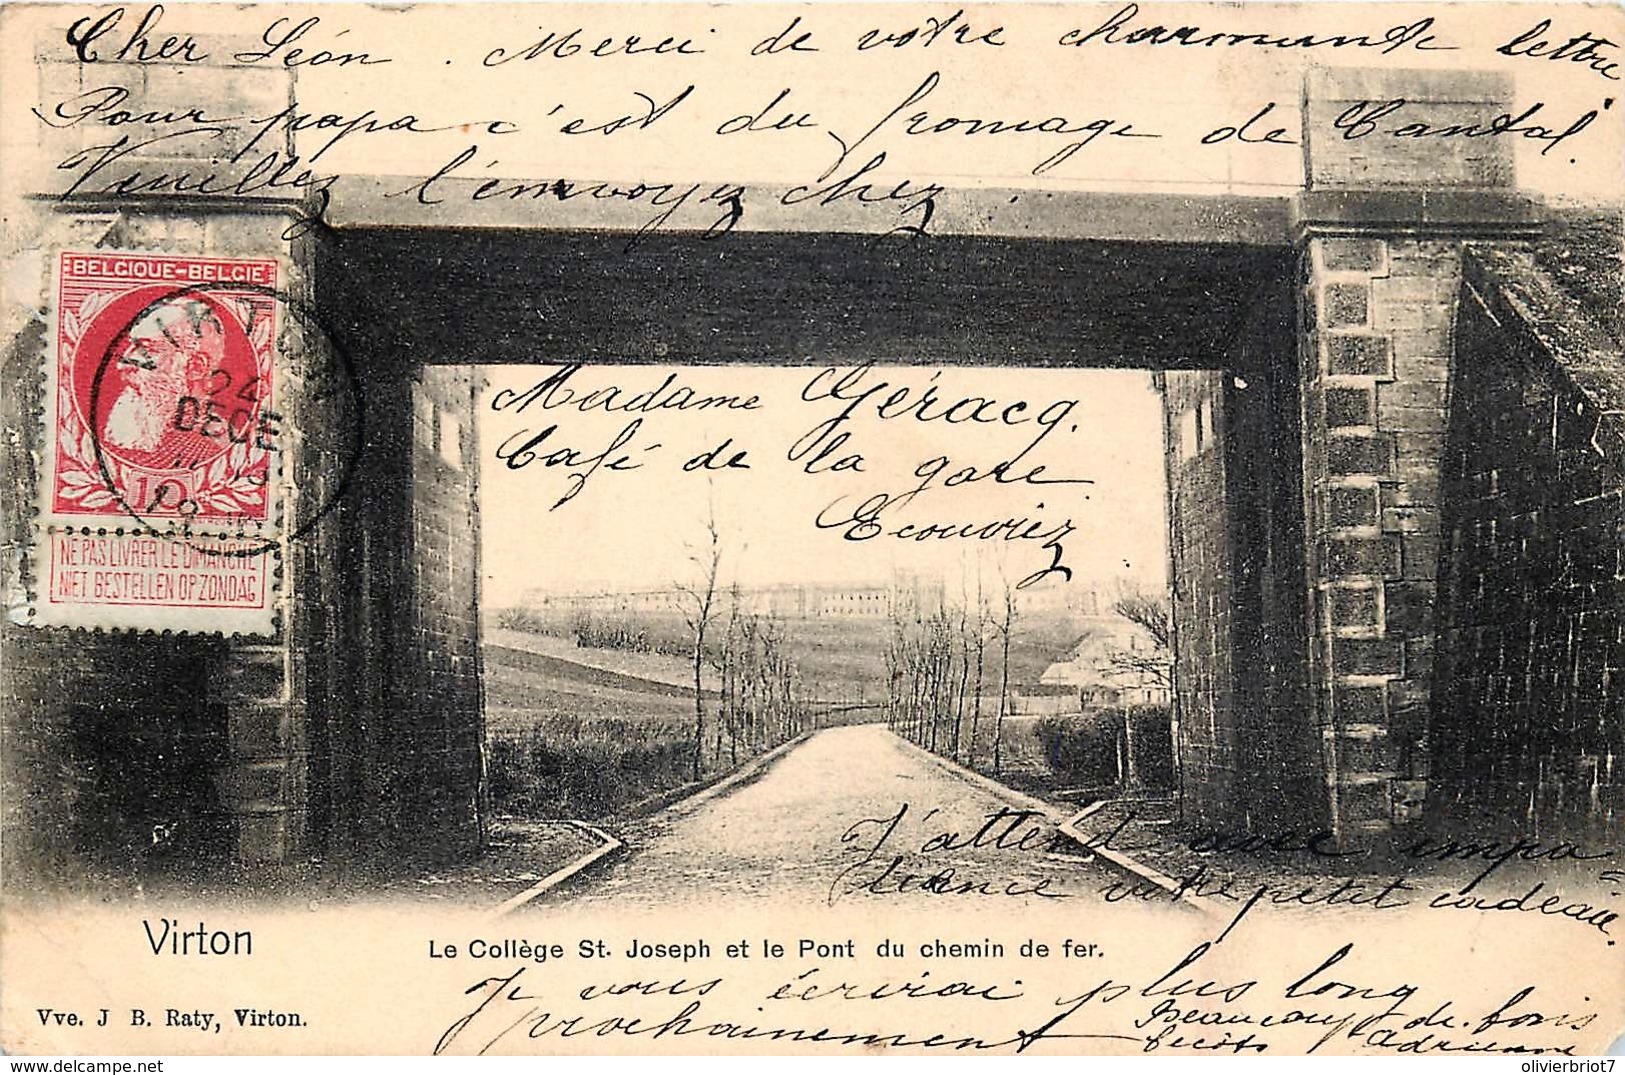 Cher Léon. Merci de votre charmante lettre
Pour papa c'est du fromage de Cantal.
Veuillez l'envoyez chez.
BELGIQUE-BELGIË
VIRTON
24
DECE
10
NE PAS LIVRER LE DIMANCHE
NIET BESTELLEN OP ZONDAG
Madame Géracq.
Café de la gare
Ecouviez
J'attend avec impa=
tience votre petit cadeau.
Virton
Le Collège St. Joseph et le Pont du chemin de fer.
Vve. J B. Raty, Virton.
Je vous écrirai plus long
prochainement
Beaucoup de bons
Adrienne
olivierbriot7